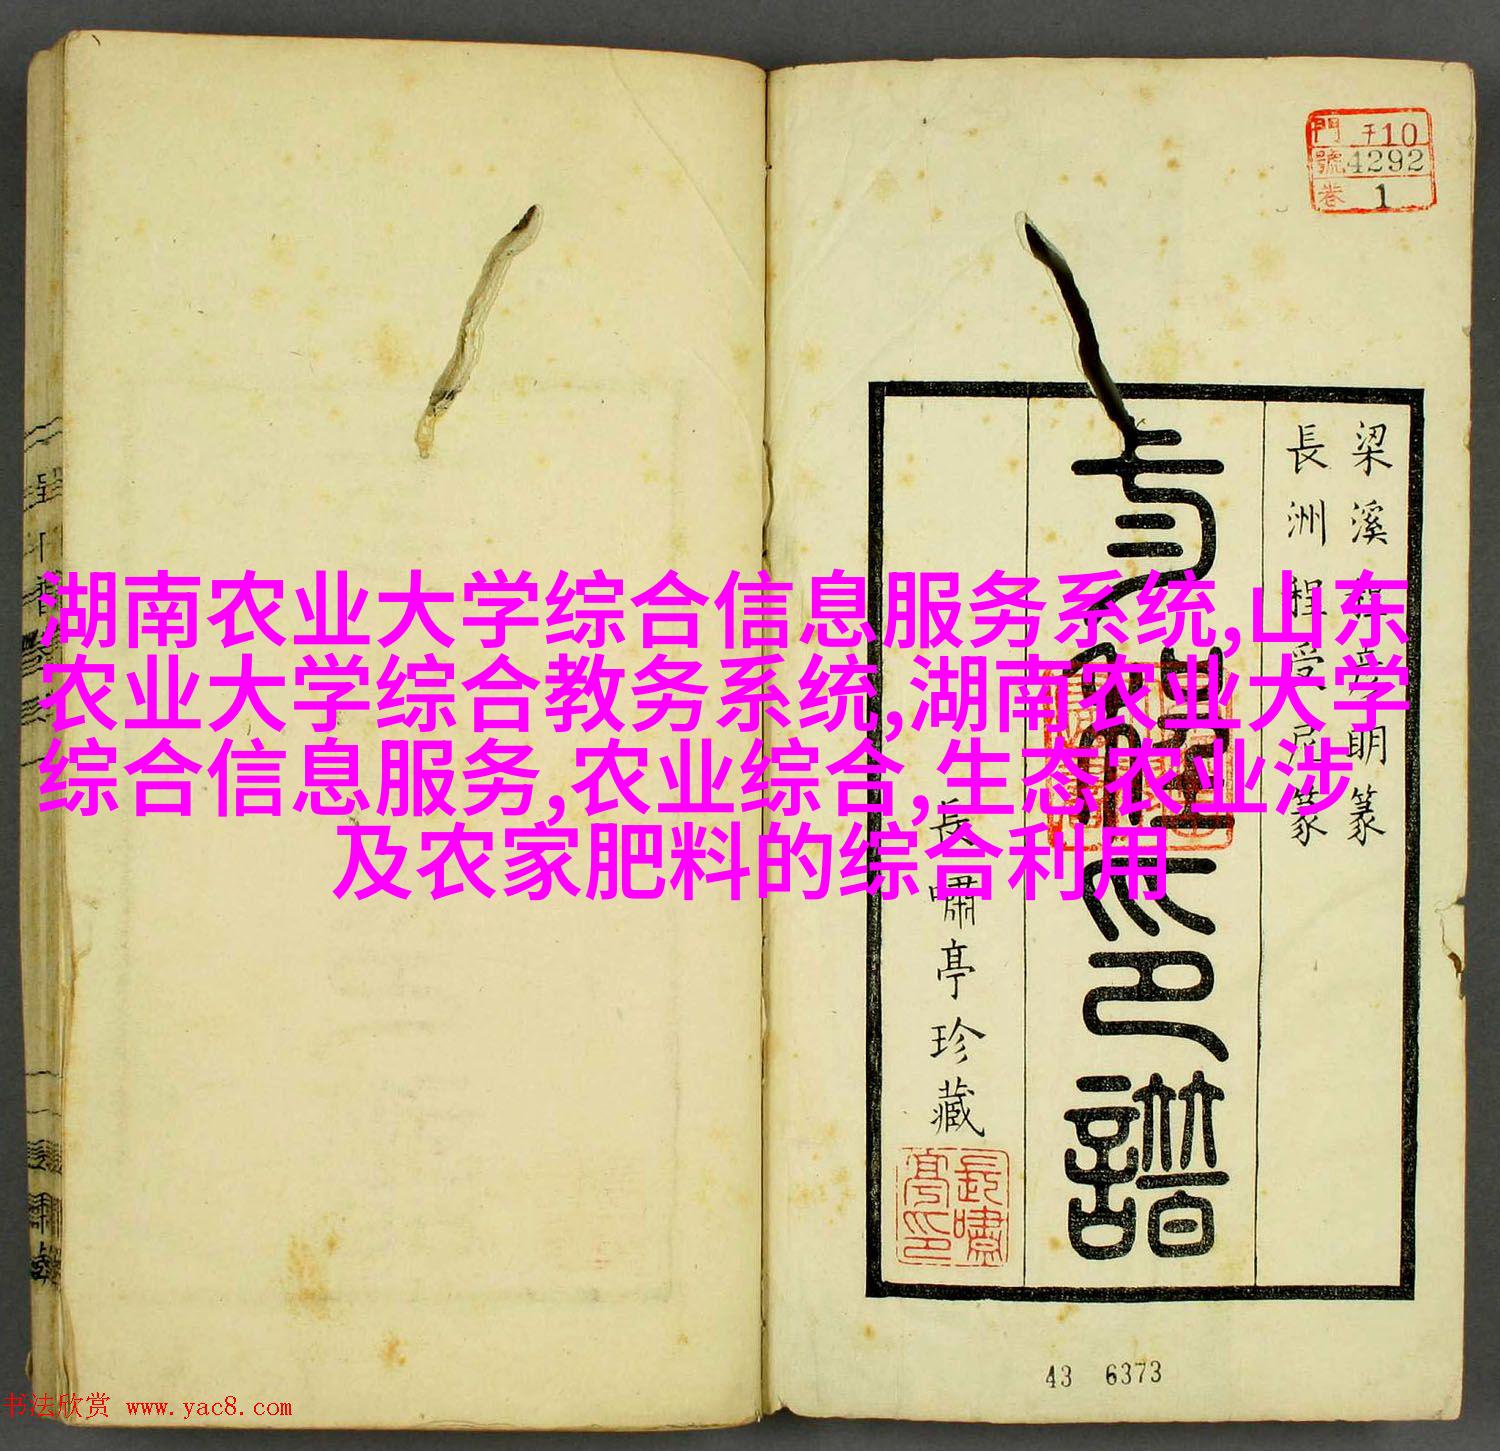 門 子10
號 4292
卷 1
湖南农业大学综合信息服务系统,山东
农业大学综合教务系统,湖南农业大学
综合信息服务,农业综合,生态农业涉
及农家肥料的综合利用
梁溪程彦明篆
長洲程受尼篆
印譜
長嘯亭珍藏
長嘯亭印
43 6373
书法欣赏 www.yac8.com